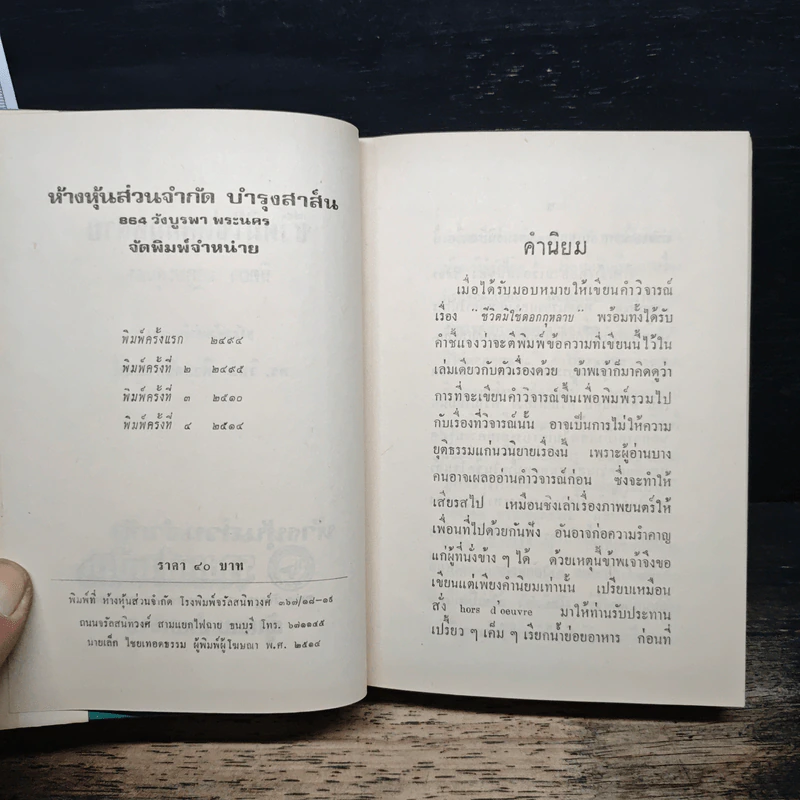 ห้างหุ้นส่วนจำกัด บำรุงสาส์น
๘๖๔ วังบูรพา พระนคร
จัดพิมพ์จำหน่าย
พิมพ์ครั้งแรก ๒๔๙๔
พิมพ์ครั้งที่ ๒ ๒๔๙๕
พิมพ์ครั้งที่ ๓ ๒๕๑๐
พิมพ์ครั้งที่ ๔ ๒๕๑๔
ราคา ๔๐ บาท
พิมพ์ที่ ห้างหุ้นส่วนจำกัด โรงพิมพ์จรัลสนิทวงศ์ ๓๖๗/๑๘-๑๙
ถนนจรัลสนิทวงศ์ สามแยกไฟฉาย ธนบุรี โทร. ๖๗๑๑๔๕
นายเล็ก ไชยเทอดธรรม ผู้พิมพ์ผู้โฆษณา พ.ศ. ๒๕๑๔
คำนิยม
เมื่อได้รับมอบหมายให้เขียนคำวิจารณ์
เรื่อง "ชีวิตมิใช่ดอกกุหลาบ" พร้อมทั้งได้รับ
คำชี้แจงว่าจะตีพิมพ์ข้อความที่เขียนนี้ไว้ใน
เล่มเดียวกับตัวเรื่องด้วย ข้าพเจ้าก็มาคิดดูว่า
การที่จะเขียนคำวิจารณ์ขึ้นเพื่อพิมพ์รวมไป
กับเรื่องที่วิจารณ์นั้น อาจเป็นการไม่ให้ความ
ยุติธรรมแก่นวนิยายเรื่องนี้ เพราะผู้อ่านบาง
คนอาจเผลออ่านคำวิจารณ์ก่อน ซึ่งจะทำให้
เสียรสไป เหมือนชิงเล่าเรื่องภาพยนตร์ให้
เพื่อนที่ไปด้วยกันฟัง อันอาจก่อความรำคาญ
แก่ผู้ที่นั่งข้าง ๆ ได้ ด้วยเหตุนี้ข้าพเจ้าจึงขอ
เขียนแต่เพียงคำนิยมเท่านั้น เปรียบเหมือน
สั่ง hors d'oeuvre มาให้ท่านรับประทาน
เปรี้ยว ๆ เค็ม ๆ เรียกน้ำย่อยอาหาร ก่อนที่